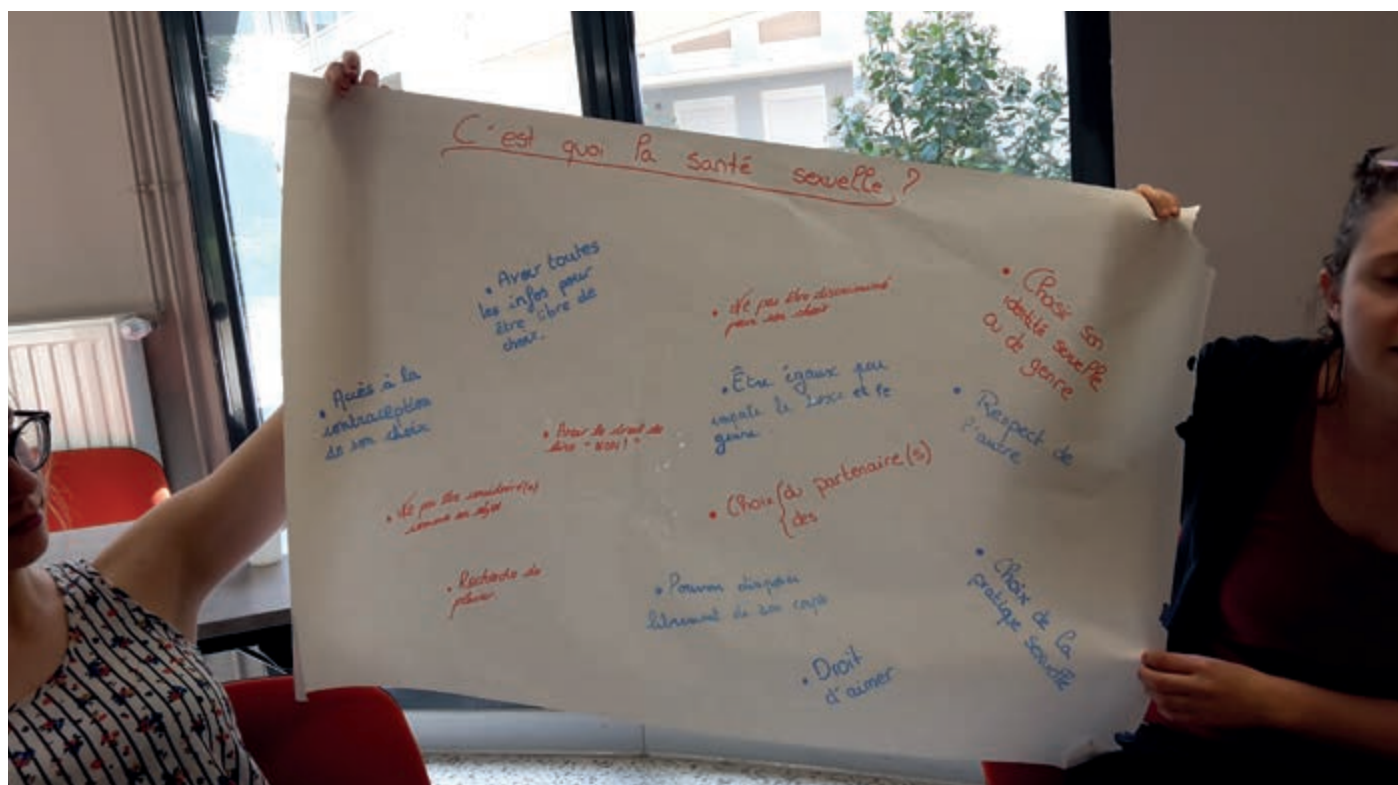 C'est quoi la santé sexuelle ?
• Avoir toutes
les infos pour
être libre de
choisir.
• Ne pas être discriminé
pour son choix
• Choisir son
identité sexuelle
ou de genre
• Accès à la
contraception
de son choix
• Avoir le droit de
dire "NON !"
• Être égaux peu
importe le sexe et le
genre
• Respect de
l'autre
• Ne pas être considéré(e)
comme un objet
• Choix { du partenaire(s)
des
• Recherche de
plaisir.
• Pouvoir disposer
librement de son corps
• Choix de la
pratique sexuelle
• Droit
d'aimer